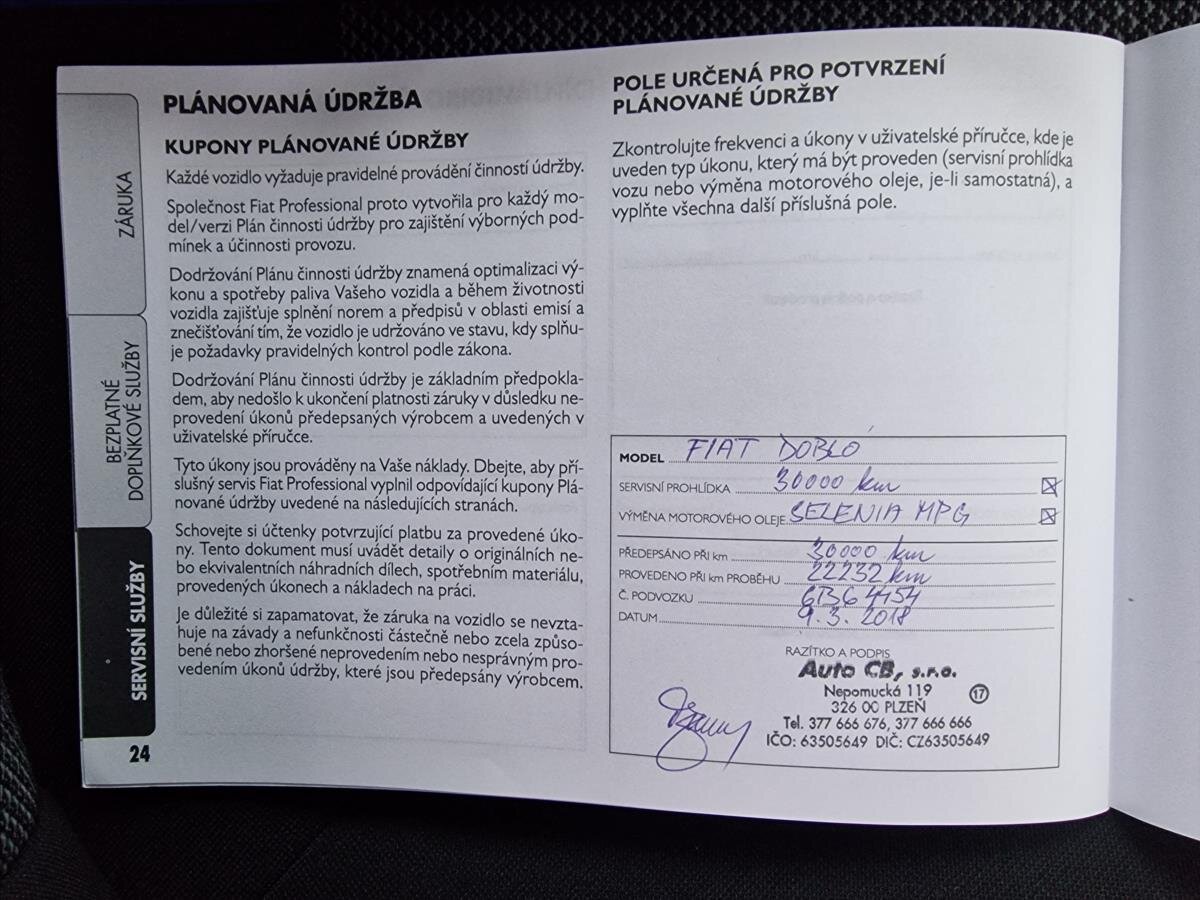 PLÁNOVANÁ ÚDRŽBA
KUPONY PLÁNOVANÉ ÚDRŽBY
Každé vozidlo vyžaduje pravidelné provádění činností údržby.
Společnost Fiat Professional proto vytvořila pro každý mo-
del/verzi Plán činnosti údržby pro zajištění výborných pod-
mínek a účinnosti provozu.
Dodržování Plánu činnosti údržby znamená optimalizaci vý-
konu a spotřeby paliva Vašeho vozidla a během životnosti
vozidla zajišťuje splnění norem a předpisů v oblasti emisí a
znečišťování tím, že vozidlo je udržováno ve stavu, kdy splňu-
je požadavky pravidelných kontrol podle zákona.
Dodržování Plánu činnosti údržby je základním předpokla-
dem, aby nedošlo k ukončení platnosti záruky v důsledku ne-
provedení úkonů předepsaných výrobcem a uvedených v
uživatelské příručce.
Tyto úkony jsou prováděny na Vaše náklady. Dbejte, aby pří-
slušný servis Fiat Professional vyplnil odpovídající kupony Plá-
nované údržby uvedené na následujících stranách.
Schovejte si účtenky potvrzující platbu za provedené úko-
ny. Tento dokument musí uvádět detaily o originálních ne-
bo ekvivalentních náhradních dílech, spotřebním materiálu,
provedených úkonech a nákladech na práci.
Je důležité si zapamatovat, že záruka na vozidlo se nevzta-
huje na závady a nefunkčnosti částečně nebo zcela způso-
bené nebo zhoršené neprovedením nebo nesprávným pro-
vedením úkonů údržby, které jsou předepsány výrobcem.
ZÁRUKA
BEZPLATNÉ
DOPLŇKOVÉ SLUŽBY
SERVISNÍ SLUŽBY
24
POLE URČENÁ PRO POTVRZENÍ
PLÁNOVANÉ ÚDRŽBY
Zkontrolujte frekvenci a úkony v uživatelské příručce, kde je
uveden typ úkonu, který má být proveden (servisní prohlídka
vozu nebo výměna motorového oleje, je-li samostatná), a
vyplňte všechna další příslušná pole.
MODEL FIAT DOBLO
SERVISNÍ PROHLÍDKA 30000 km
VÝMĚNA MOTOROVÉHO OLEJE SELENIA MPG
PŘEDEPSÁNO PŘI km 30000 km
PROVEDENO PŘI km PROBĚHU 22232 km
Č. PODVOZKU
DATUM 9.3.2018
RAZÍTKO A PODPIS
Auto CB, s.r.o.
Nepomucká 119 17
326 00 PLZEŇ
Tel. 377 666 676, 377 666 666
IČO: 63505649 DIČ: CZ63505649